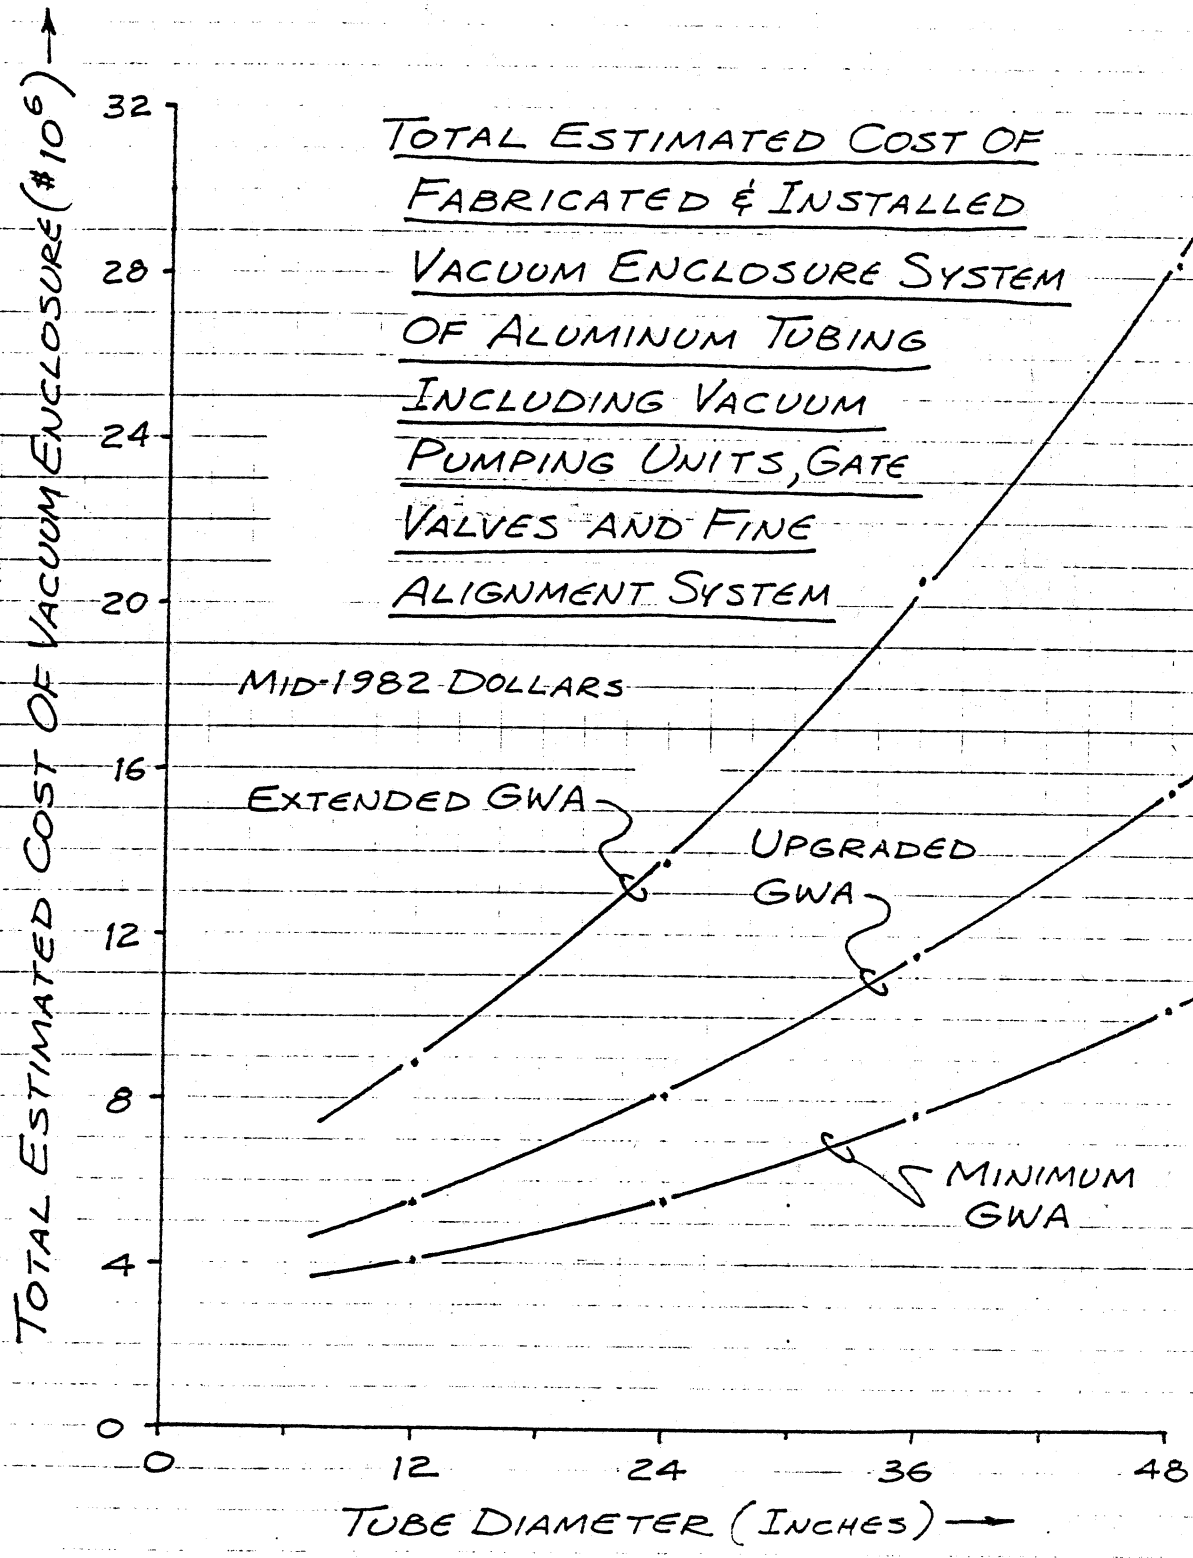 TOTAL ESTIMATED COST OF VACUUM ENCLOSURE ($10⁶) →
32
28
24
20
16
12
8
4
0
TOTAL ESTIMATED COST OF
FABRICATED & INSTALLED
VACUUM ENCLOSURE SYSTEM
OF ALUMINUM TUBING
INCLUDING VACUUM
PUMPING UNITS, GATE
VALVES AND FINE
ALIGNMENT SYSTEM
MID-1982 DOLLARS
EXTENDED GWA
UPGRADED
GWA
MINIMUM
GWA
0 12 24 36 48
TUBE DIAMETER (INCHES) →